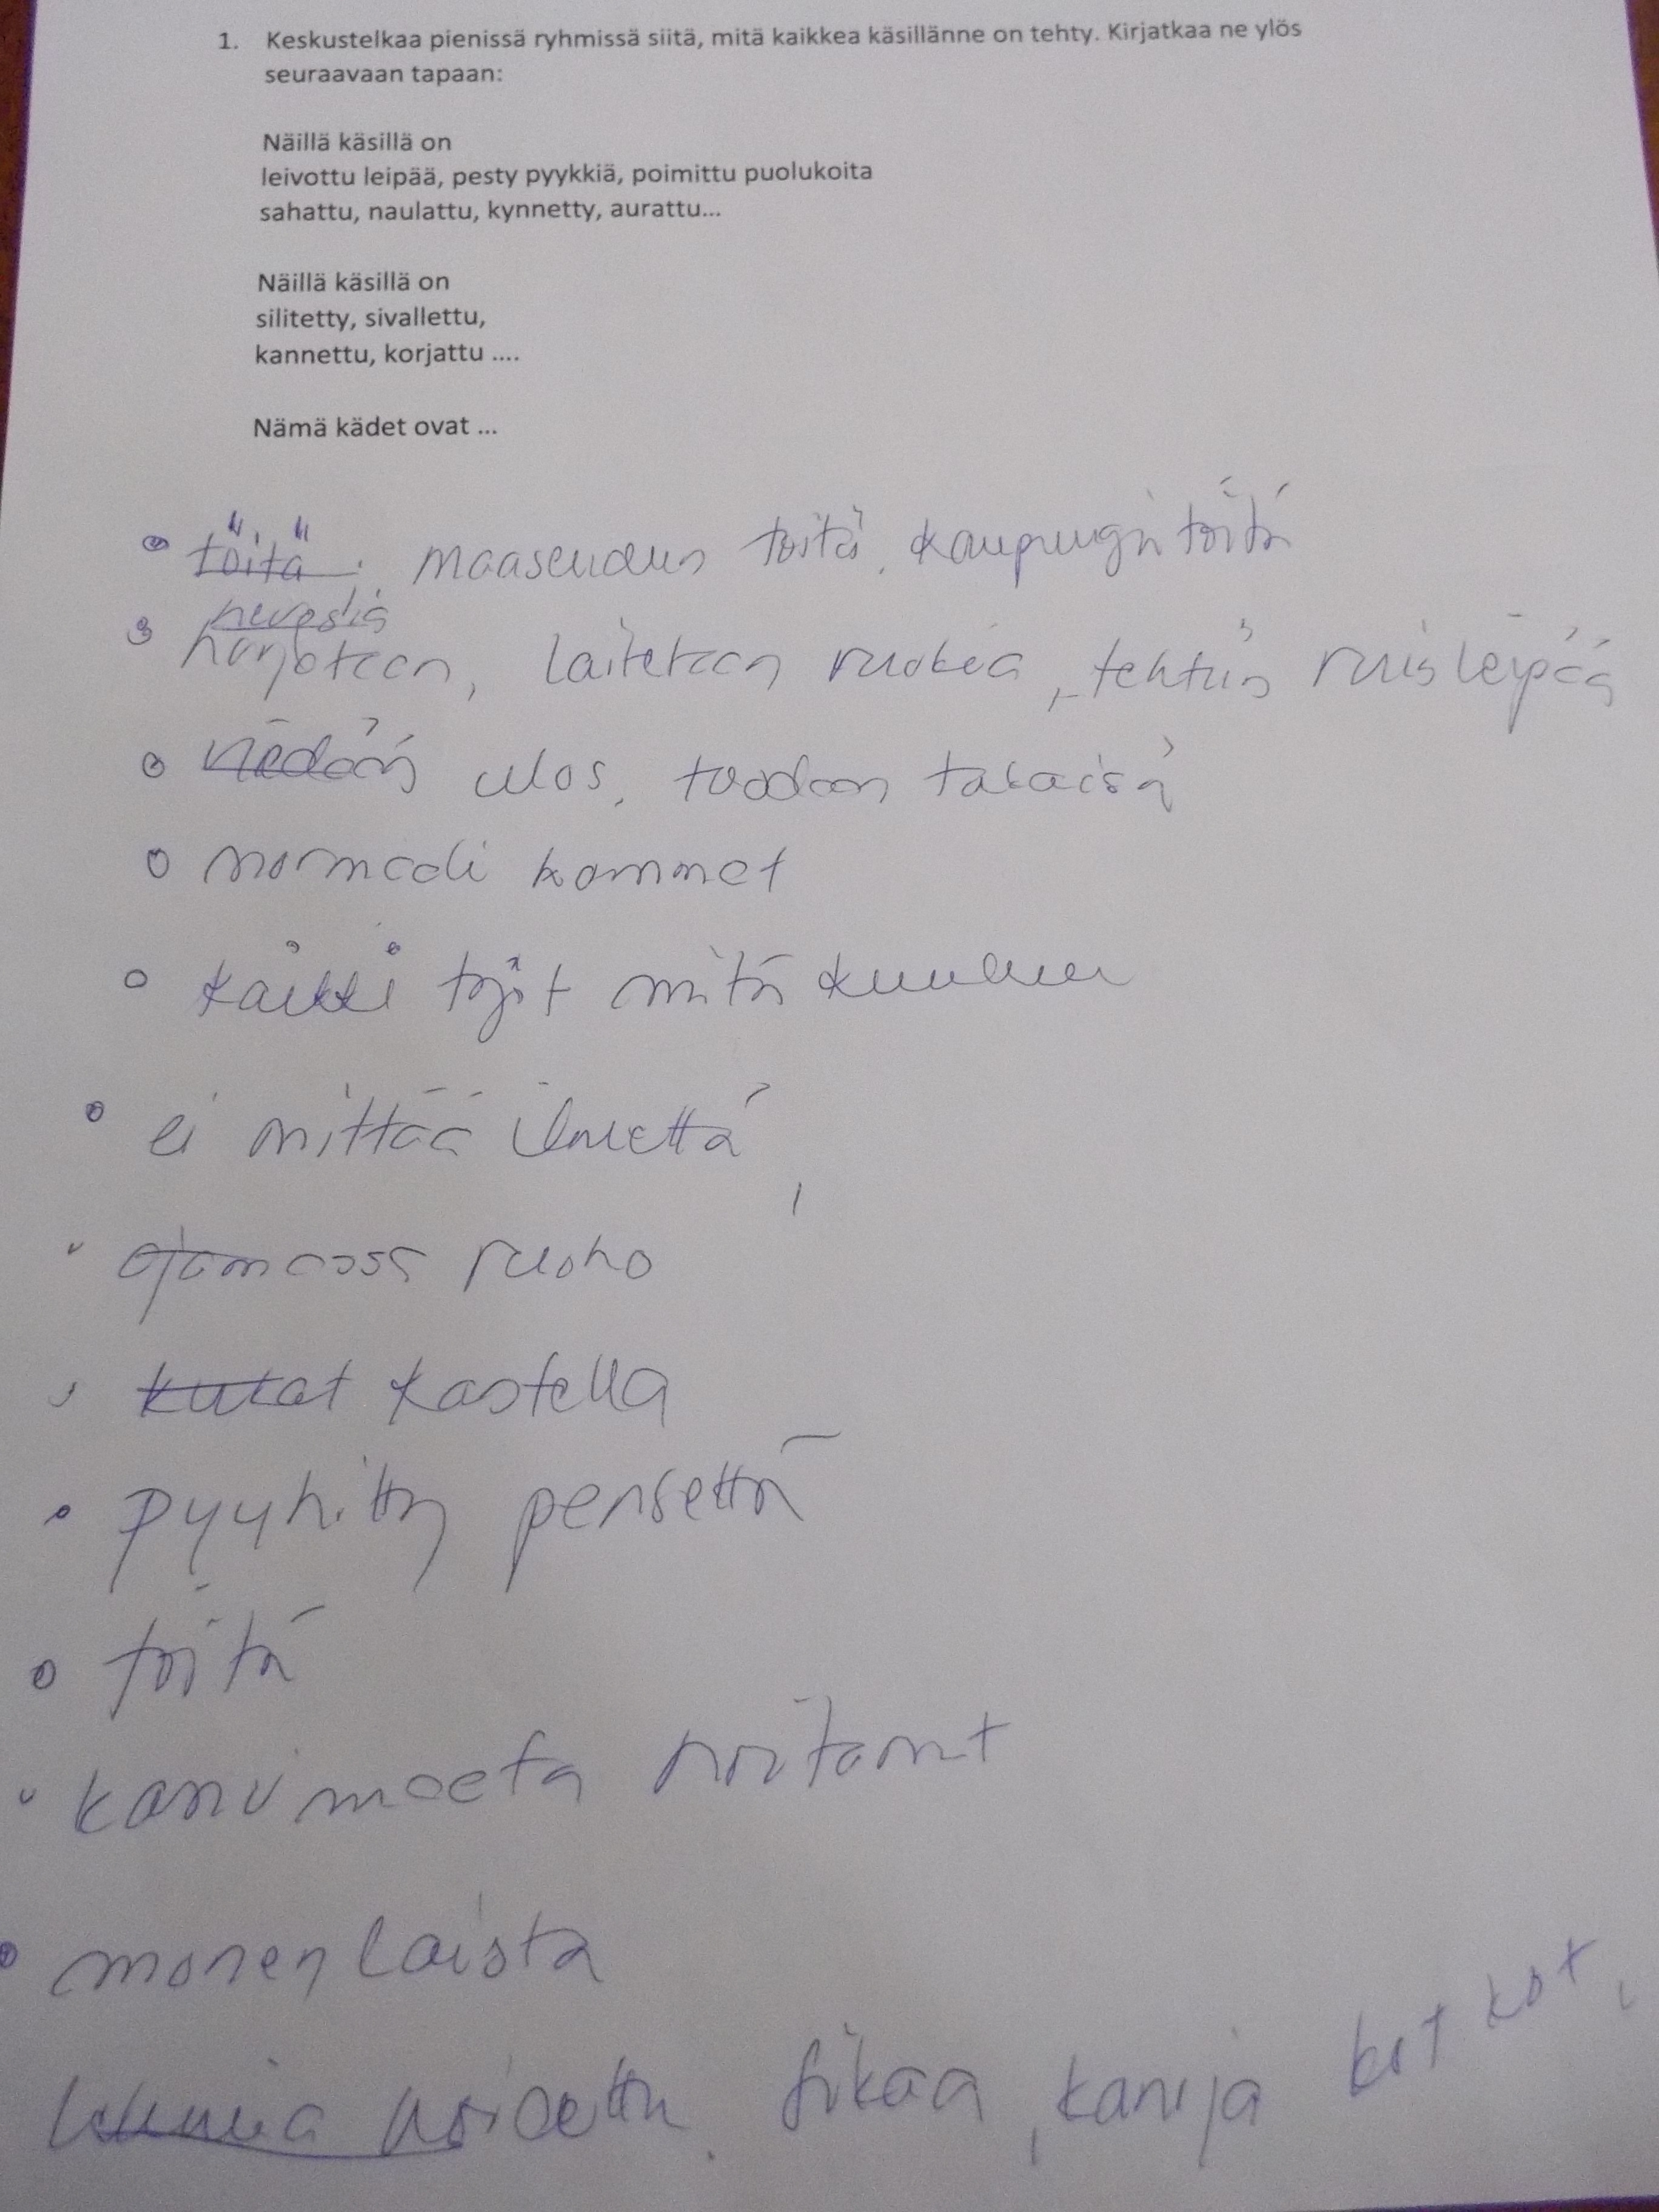 1. Keskustelkaa pienissä ryhmissä siitä, mitä kaikkea käsillänne on tehty. Kirjatkaa ne ylös
seuraavaan tapaan:
Näillä käsillä on
leivottu leipää, pesty pyykkiä, poimittu puolukoita
sahattu, naulattu, kynnetty, aurattu...
Näillä käsillä on
silitetty, sivallettu,
kannettu, korjattu ....
Nämä kädet ovat ...
töitä, maaseudun töitä, kaupungin töitä
hevosia
harjataan, laitetaan ruokaa, tehtiin ruisleipää
viedään ulos, tuodaan takaisin
normaali hommat
kaikki työt mitä kuuluu
ei mittää ilmettä
ajamassa ruoho
kukat kastella
pyyhitty pensettä
töitä
kanoja hoitanut
monenlaista
lehmiä hoidettu, sikaa, kanoja kot kot,